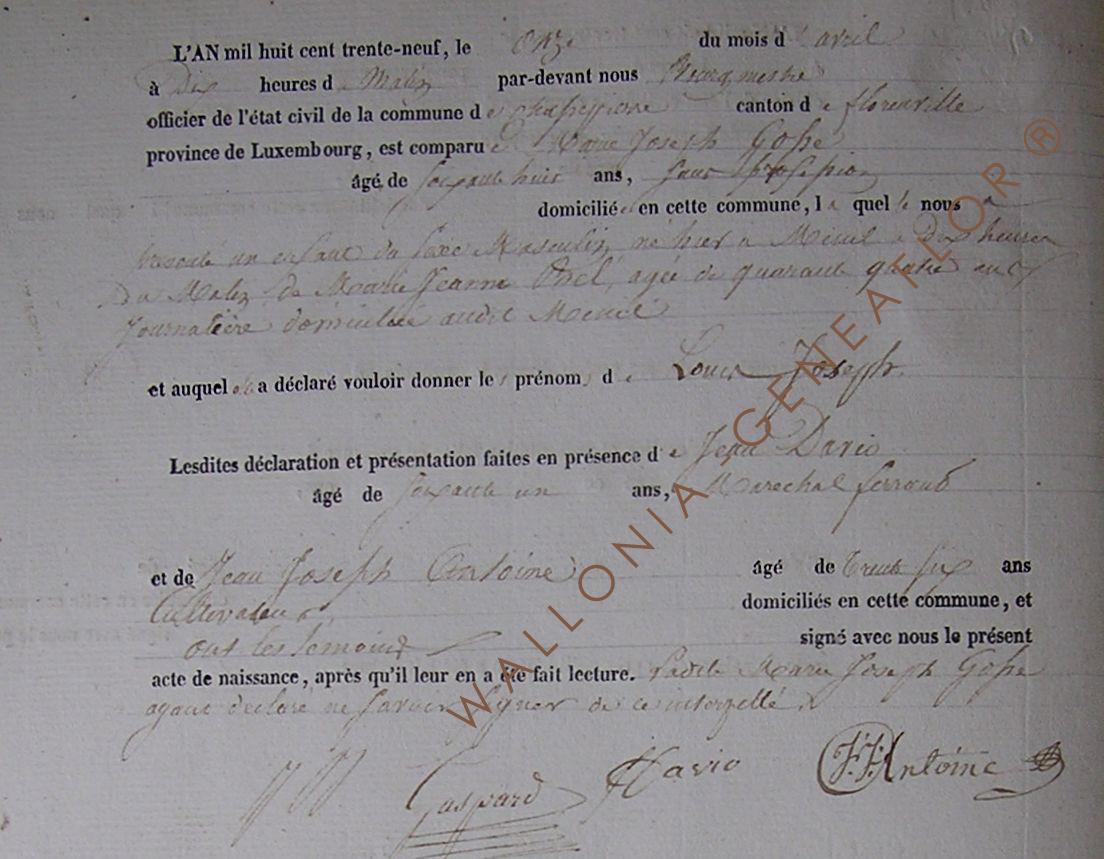 L'AN mil huit cent trente-neuf, le onze du mois d avril
à Dix heures du Matin par-devant nous Bourgmestre
officier de l'état civil de la commune de chassepierre canton de florenville
province de Luxembourg, est comparue Marie Joseph Gosse
âgé de soixante huit ans, sans profession
domiciliée en cette commune, la quelle nous a
présenté un enfant du sexe Masculin, né hier à Menil à dix heures
du Matin de Marie Jeanne agée de quarante quatre ans
journalière domiciliée audit Menil
et auquel elle a déclaré vouloir donner les prénoms de Louis Joseph.
Lesdites déclaration et présentation faites en présence de Jean Davio
âgé de soixante un ans, Marechal ferrand
et de Jean Joseph Antoine âgé de trente six ans
Cultivateur domiciliés en cette commune, et
ont les temoins signé avec nous le présent
acte de naissance, après qu'il leur en a été fait lecture. Ladite Marie Joseph Gosse
ayant déclaré ne savoir signer de ce interpellé.
Gaspard Davio J.J. Antoine
WALLONIA GENEAFLOR ®